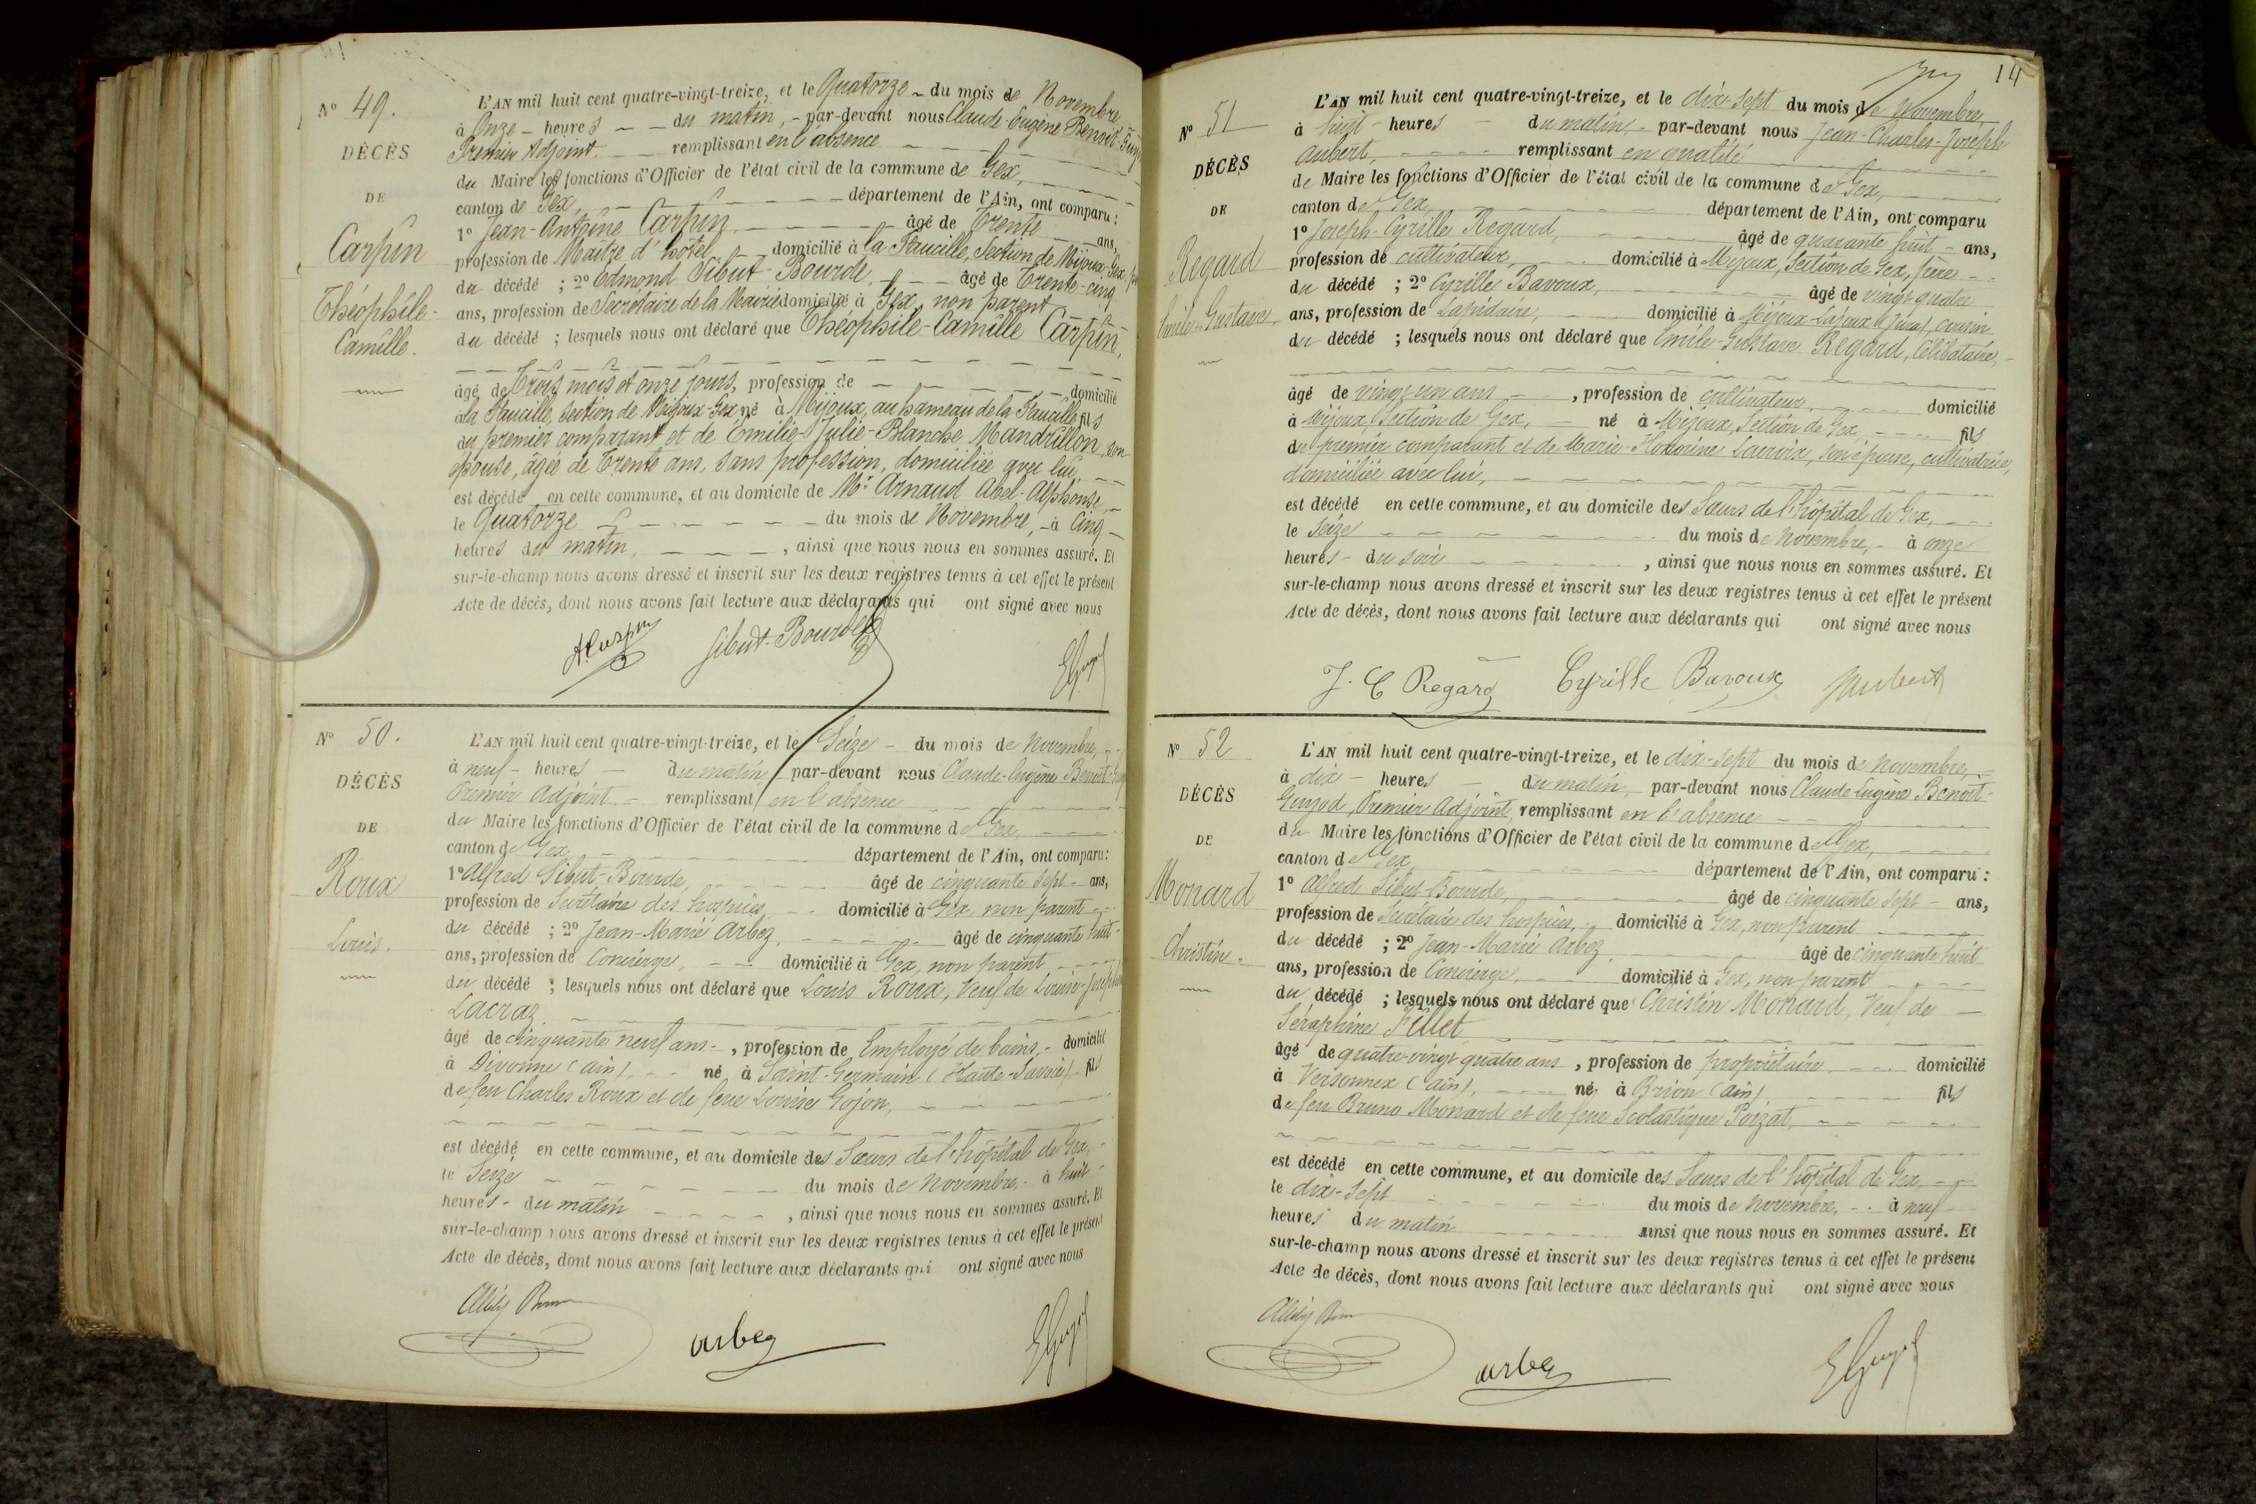 N° 49.
DÉCÈS
DE
Carpin
Théophile-
Camille.
L'AN mil huit cent quatre-vingt-treize, et le Quatorze du mois de Novembre
à Onze heures du matin, par-devant nous Claude-Eugène Benoit-
Premier Adjoint remplissant en l'absence
du Maire les fonctions d'Officier de l'état civil de la commune de Gex,
canton de Gex, département de l'Ain, ont comparu :
1° Jean-Antoine Carpin, âgé de Trente ans,
profession de Maître d'hôtel, domicilié à la Faucille, Section de Mijoux-Gex,
du décédé ; 2° Edmond Sibut-Bourde, âgé de Trente-cinq
ans, profession de Secrétaire de la Mairie domicilié à Gex, non parent
du décédé ; lesquels nous ont déclaré que Théophile-Camille Carpin,
âgé de Trois mois et onze jours, profession de domicilié
à la Faucille, Section de Mijoux-Gex né à Mijoux, au hameau de la Faucille fils
du premier comparant et de Emilie-Julie-Blanche Mandrillon, son
épouse, âgée de Trente ans, sans profession, domiciliée avec lui,
est décédé en cette commune, et au domicile de Mr Arnaud Abel-Alphonse,
le Quatorze du mois de Novembre, à Cinq
heures du matin, , ainsi que nous nous en sommes assuré. Et
sur-le-champ nous avons dressé et inscrit sur les deux registres tenus à cet effet le présent
Acte de décès, dont nous avons fait lecture aux déclarants qui ont signé avec nous
A. Carpin Sibut-Bourde
N° 50.
DÉCÈS
DE
Roux
Louis.
L'AN mil huit cent quatre-vingt-treize, et le Seize du mois de Novembre,
à neuf heures du matin par-devant nous Claude-Eugène Benoit-
Premier Adjoint remplissant en l'absence
du Maire les fonctions d'Officier de l'état civil de la commune de Gex,
canton de Gex, département de l'Ain, ont comparu:
1° Alfred Sibut-Bourde, âgé de cinquante sept ans,
profession de Secrétaire des hospices, domicilié à Gex, non parent
du décédé ; 2° Jean-Marie Arbez, âgé de cinquante huit
ans, profession de Concierge, domicilié à Gex, non parent
du décédé ; lesquels nous ont déclaré que Louis Roux, Veuf de Louise-
Lacraz
âgé de cinquante neuf ans , profession de Employé de bains, domicilié
à Divonne (ain), né à Saint-Germain (Haute-Savoie) fils
de feu Charles Roux et de feue Louise Gojon,
est décédé en cette commune, et au domicile des Sœurs de l'hôpital de Gex,
le Seize du mois de Novembre, à huit
heures du matin , ainsi que nous nous en sommes assuré. Et
sur-le-champ nous avons dressé et inscrit sur les deux registres tenus à cet effet le présent
Acte de décès, dont nous avons fait lecture aux déclarants qui ont signé avec nous
arbez
14
N° 51
DÉCÈS
DE
Regard
Emile-Gustave.
L'AN mil huit cent quatre-vingt-treize, et le dix-Sept du mois de Novembre,
à huit heures du matin, par-devant nous Jean-Charles-Joseph
Aubert, remplissant en qualité
de Maire les fonctions d'Officier de l'état civil de la commune de Gex,
canton de Gex, département de l'Ain, ont comparu
1° Joseph-Cyrille Regard, âgé de quarante huit ans,
profession de cultivateur, domicilié à Mijoux, Section de Gex, père
du décédé ; 2° Cyrille Bavoux, âgé de vingt-quatre
ans, profession de Lapidaire, domicilié à Mijoux-Lajoux (Jura), cousin
du décédé ; lesquels nous ont déclaré que Emile-Gustave Regard, Célibataire,
âgé de vingt-un ans , profession de cultivateur, domicilié
à Mijoux, Section de Gex, né à Mijoux, Section de Gex, fils
du premier comparant et de Marie-Honorine Lacroix, son épouse, cultivatrice,
domiciliée avec lui,
est décédé en cette commune, et au domicile des Sœurs de l'hôpital de Gex,
le Seize du mois de Novembre, à onze
heures du soir , ainsi que nous nous en sommes assuré. Et
sur-le-champ nous avons dressé et inscrit sur les deux registres tenus à cet effet le présent
Acte de décès, dont nous avons fait lecture aux déclarants qui ont signé avec nous
J. C Regard Cyrille Bavoux Jaubert
N° 52
DÉCÈS
DE
Monard
Christin.
L'AN mil huit cent quatre-vingt-treize, et le dix-Sept du mois de Novembre,
à dix heures du matin, par-devant nous Claude-Eugène Benoit-
Gugod, Premier Adjoint, remplissant en l'absence
du Maire les fonctions d'Officier de l'état civil de la commune de Gex,
canton de Gex, département de l'Ain, ont comparu :
1° Alfred Sibut-Bourde, âgé de cinquante sept ans,
profession de Secrétaire des hospices, domicilié à Gex, non parent
du décédé ; 2° Jean-Marie Arbez, âgé de cinquante huit
ans, profession de Concierge, domicilié à Gex, non parent
du décédé ; lesquels nous ont déclaré que Christin Monard, Veuf de
Séraphine Fillet
âgé de quatre-vingt-quatre ans , profession de propriétaire domicilié
à Versonnex (ain), né à Brion (ain), fils
de feu Bruno Monard et de feue Scolastique Poizat,
est décédé en cette commune, et au domicile des Sœurs de l'hôpital de Gex,
le dix-Sept du mois de Novembre, à neuf
heures du matin ainsi que nous nous en sommes assuré. Et
sur-le-champ nous avons dressé et inscrit sur les deux registres tenus à cet effet le présent
Acte de décès, dont nous avons fait lecture aux déclarants qui ont signé avec nous
arbez